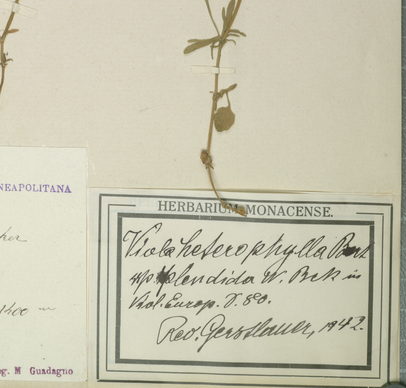 NEAPOLITANA
1400 m
og. M Guadagno
HERBARIUM MONACENSE.
Viola heterophylla Bert
ssp splendida W. Bek in
Viol. Europ. S. 80.
Rev. Gerstlauer, 1942.